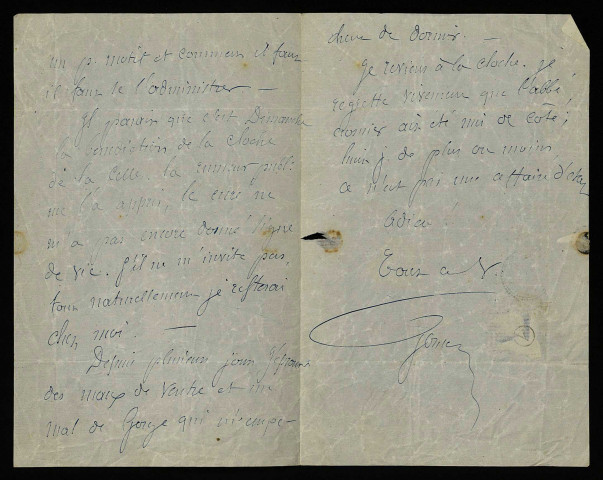 un p. motif et comment il faut
il faut se l'administrer —
Il parait que c'est Dimanche
la bénédiction de la cloche
de la Celle. la rumeur publi-
me l'a appris, le curé ne
m'a pas encore donné signe
de vie. S'il ne m'invite pas,
tout naturellement je resterai
chez moi. —
Depuis plusieurs jours j'éprouve
des maux de ventre et un
mal de gorge qui m'empê-
chent de dormir. —
Je reviens à la cloche. je
regrette vivement que l'abbé
ait été mis de côté;
huit j. de plus ou moins
ce n'est pas une affaire d'état
Adieu!
Tout à V.